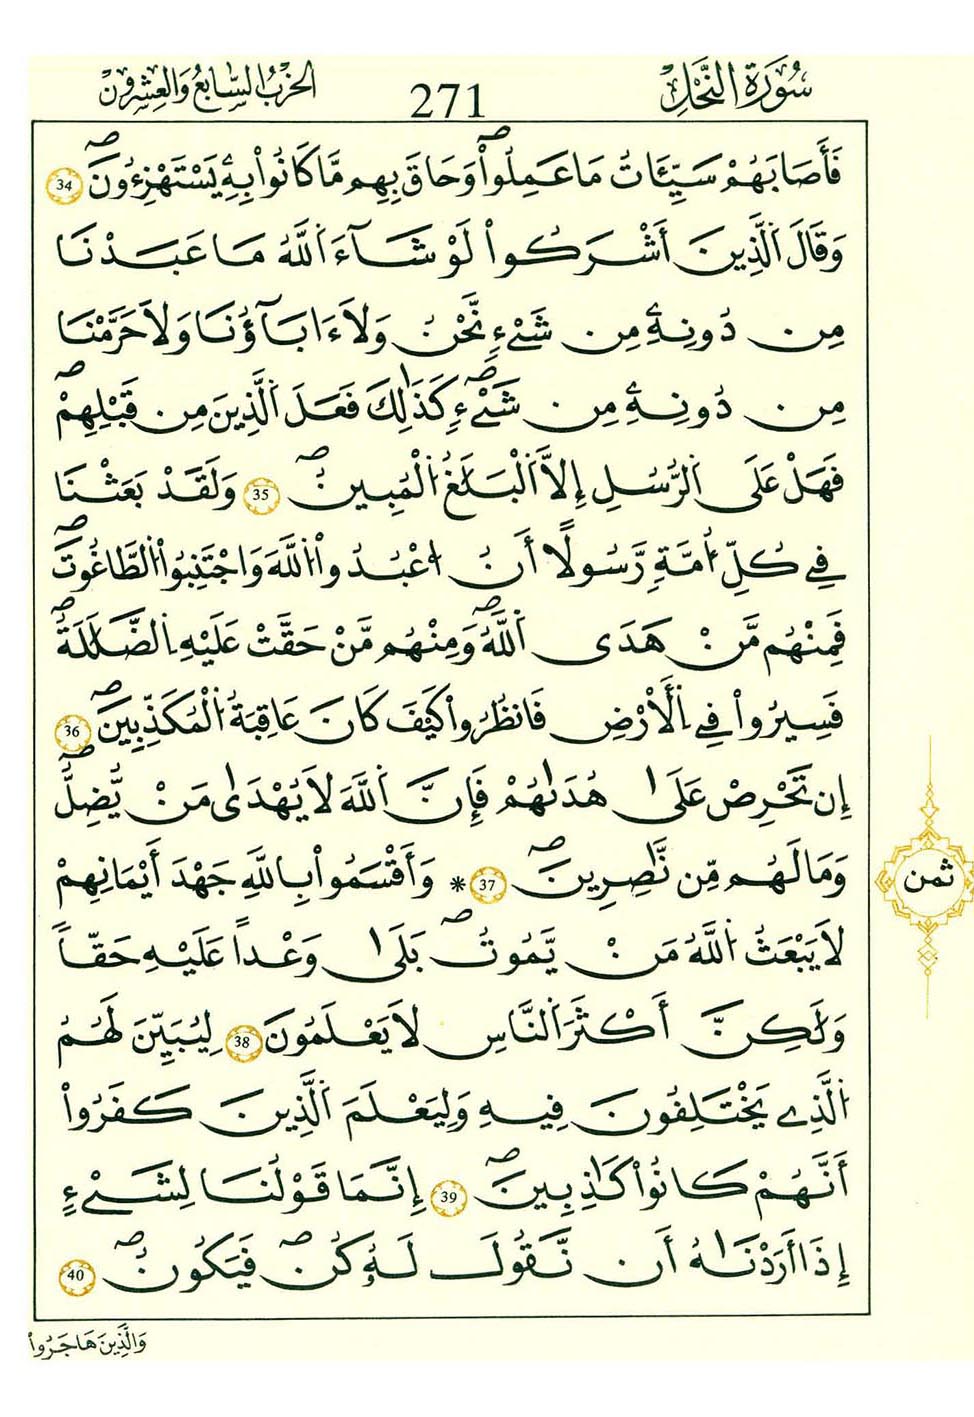 سُورَةُ النَّحْلِ
271
الحِزْبُ السَّابِعُ وَالعِشْرُونَ
فَأَصَابَهُمْ سَيِّـَٔاتُ مَا عَمِلُواْۖ وَحَاقَ بِهِم مَّا كَانُواْ بِهِۦ يَسْتَهْزِءُونَۖ 34
وَقَالَ اَ۬لذِينَ أَشْرَكُواْ لَوْ شَآءَ اَ۬للَّهُ مَا عَبَدْنَا
مِن دُونِهِۦ مِن شَےْءٖ نَّحْنُ وَلَآ ءَابَآؤُنَا وَلَا حَرَّمْنَا
مِن دُونِهِۦ مِن شَےْءٖۖ كَذَٰلِكَ فَعَلَ اَ۬لذِينَ مِن قَبْلِهِمْۖ
فَهَلْ عَلَى اَ۬لرُّسُلِ إِلَّا اَ۬لْبَلَٰغُ اُ۬لْمُبِينُۖ 35 وَلَقَدْ بَعَثْنَا
فِے كُلِّ أُمَّةٖ رَّسُولًا أَنُ اُ۟عْبُدُواْ اُ۬للَّهَ وَاجْتَنِبُواْ اُ۬لطَّٰغُوتَۖ
فَمِنْهُم مَّنْ هَدَى اَ۬للَّهُۖ وَمِنْهُم مَّنْ حَقَّتْ عَلَيْهِ اِ۬لضَّلَٰلَةُۖ
فَسِيرُواْ فِے اِ۬لْأَرْضِ فَانظُرُواْ كَيْفَ كَانَ عَاقِبَةُ اُ۬لْمُكَذِّبِينَۖ 36
إِن تَحْرِصْ عَلَىٰ هُدَىٰهُمْ فَإِنَّ اَ۬للَّهَ لَا يُهْدَىٰ مَنْ يُّضِلُّۖ
وَمَا لَهُم مِّن نَّٰصِرِينَۖ 37 * وَأَقْسَمُواْ بِاللَّهِ جَهْدَ أَيْمَانِهِمْ
لَا يَبْعَثُ اُ۬للَّهُ مَنْ يَّمُوتُۖ بَلَىٰ وَعْداً عَلَيْهِ حَقّاً
وَلَٰكِنَّ أَكْثَرَ اَ۬لنَّاسِ لَا يَعْلَمُونَ 38 لِيُبَيِّنَ لَهُمُ
اُ۬لذِے يَخْتَلِفُونَ فِيهِ وَلِيَعْلَمَ اَ۬لذِينَ كَفَرُواْ
أَنَّهُمْ كَانُواْ كَٰذِبِينَۖ 39 إِنَّمَا قَوْلُنَا لِشَےْءٍ
إِذَا أَرَدْنَٰهُ أَن نَّقُولَ لَهُۥ كُنۖ فَيَكُونُۖ 40
ثمن
وَالَّذِينَ هَاجَرُواْ